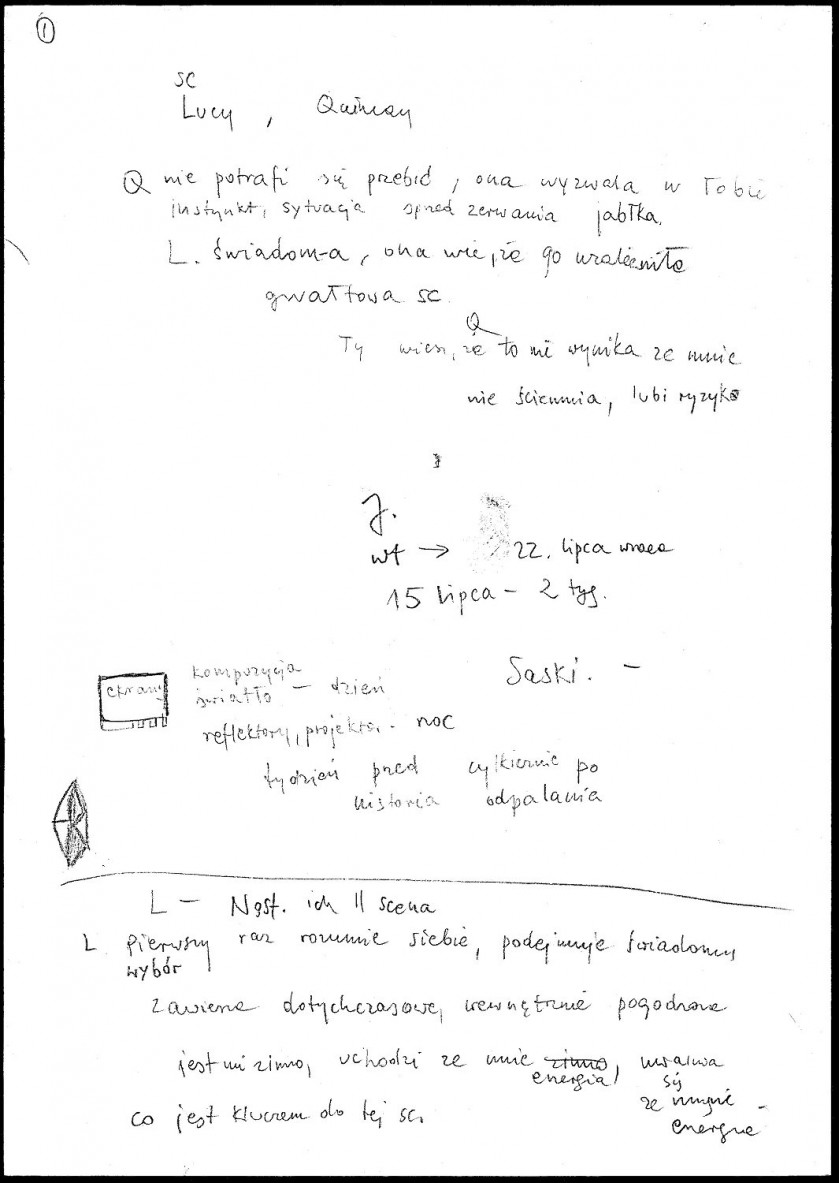 1
sc
Lucy, Quincay
Q nie potrafi się przebić, ona wyzwala w Tobie
instynkt, sytuacja sprzed zerwania jabłka.
L. świadom-a, ona wie, że go
gwałtowa sc.
Q
Ty wiesz, że to nie wynika ze mnie
nie ściemnia, lubi ryzyko
J.
wt → 22. lipca wraca
15 lipca - 2 tyg.
ekrany
kompozycja
światło - dzień
Saski. -
reflektory, projekto. - noc
tydzień przed cyłkiernie po
historia odpalania
L - Nast. ich II scena
L Pierwszy raz rozumie siebie, podejmuje świadomy
wybór
zawiera dotychczasowe, wewnętrznie pogodzona
jest mi zimno, uchodzi ze mnie zimno, urywa
energia, się
ze mnie -
co jest kluczem do tej sc. energie